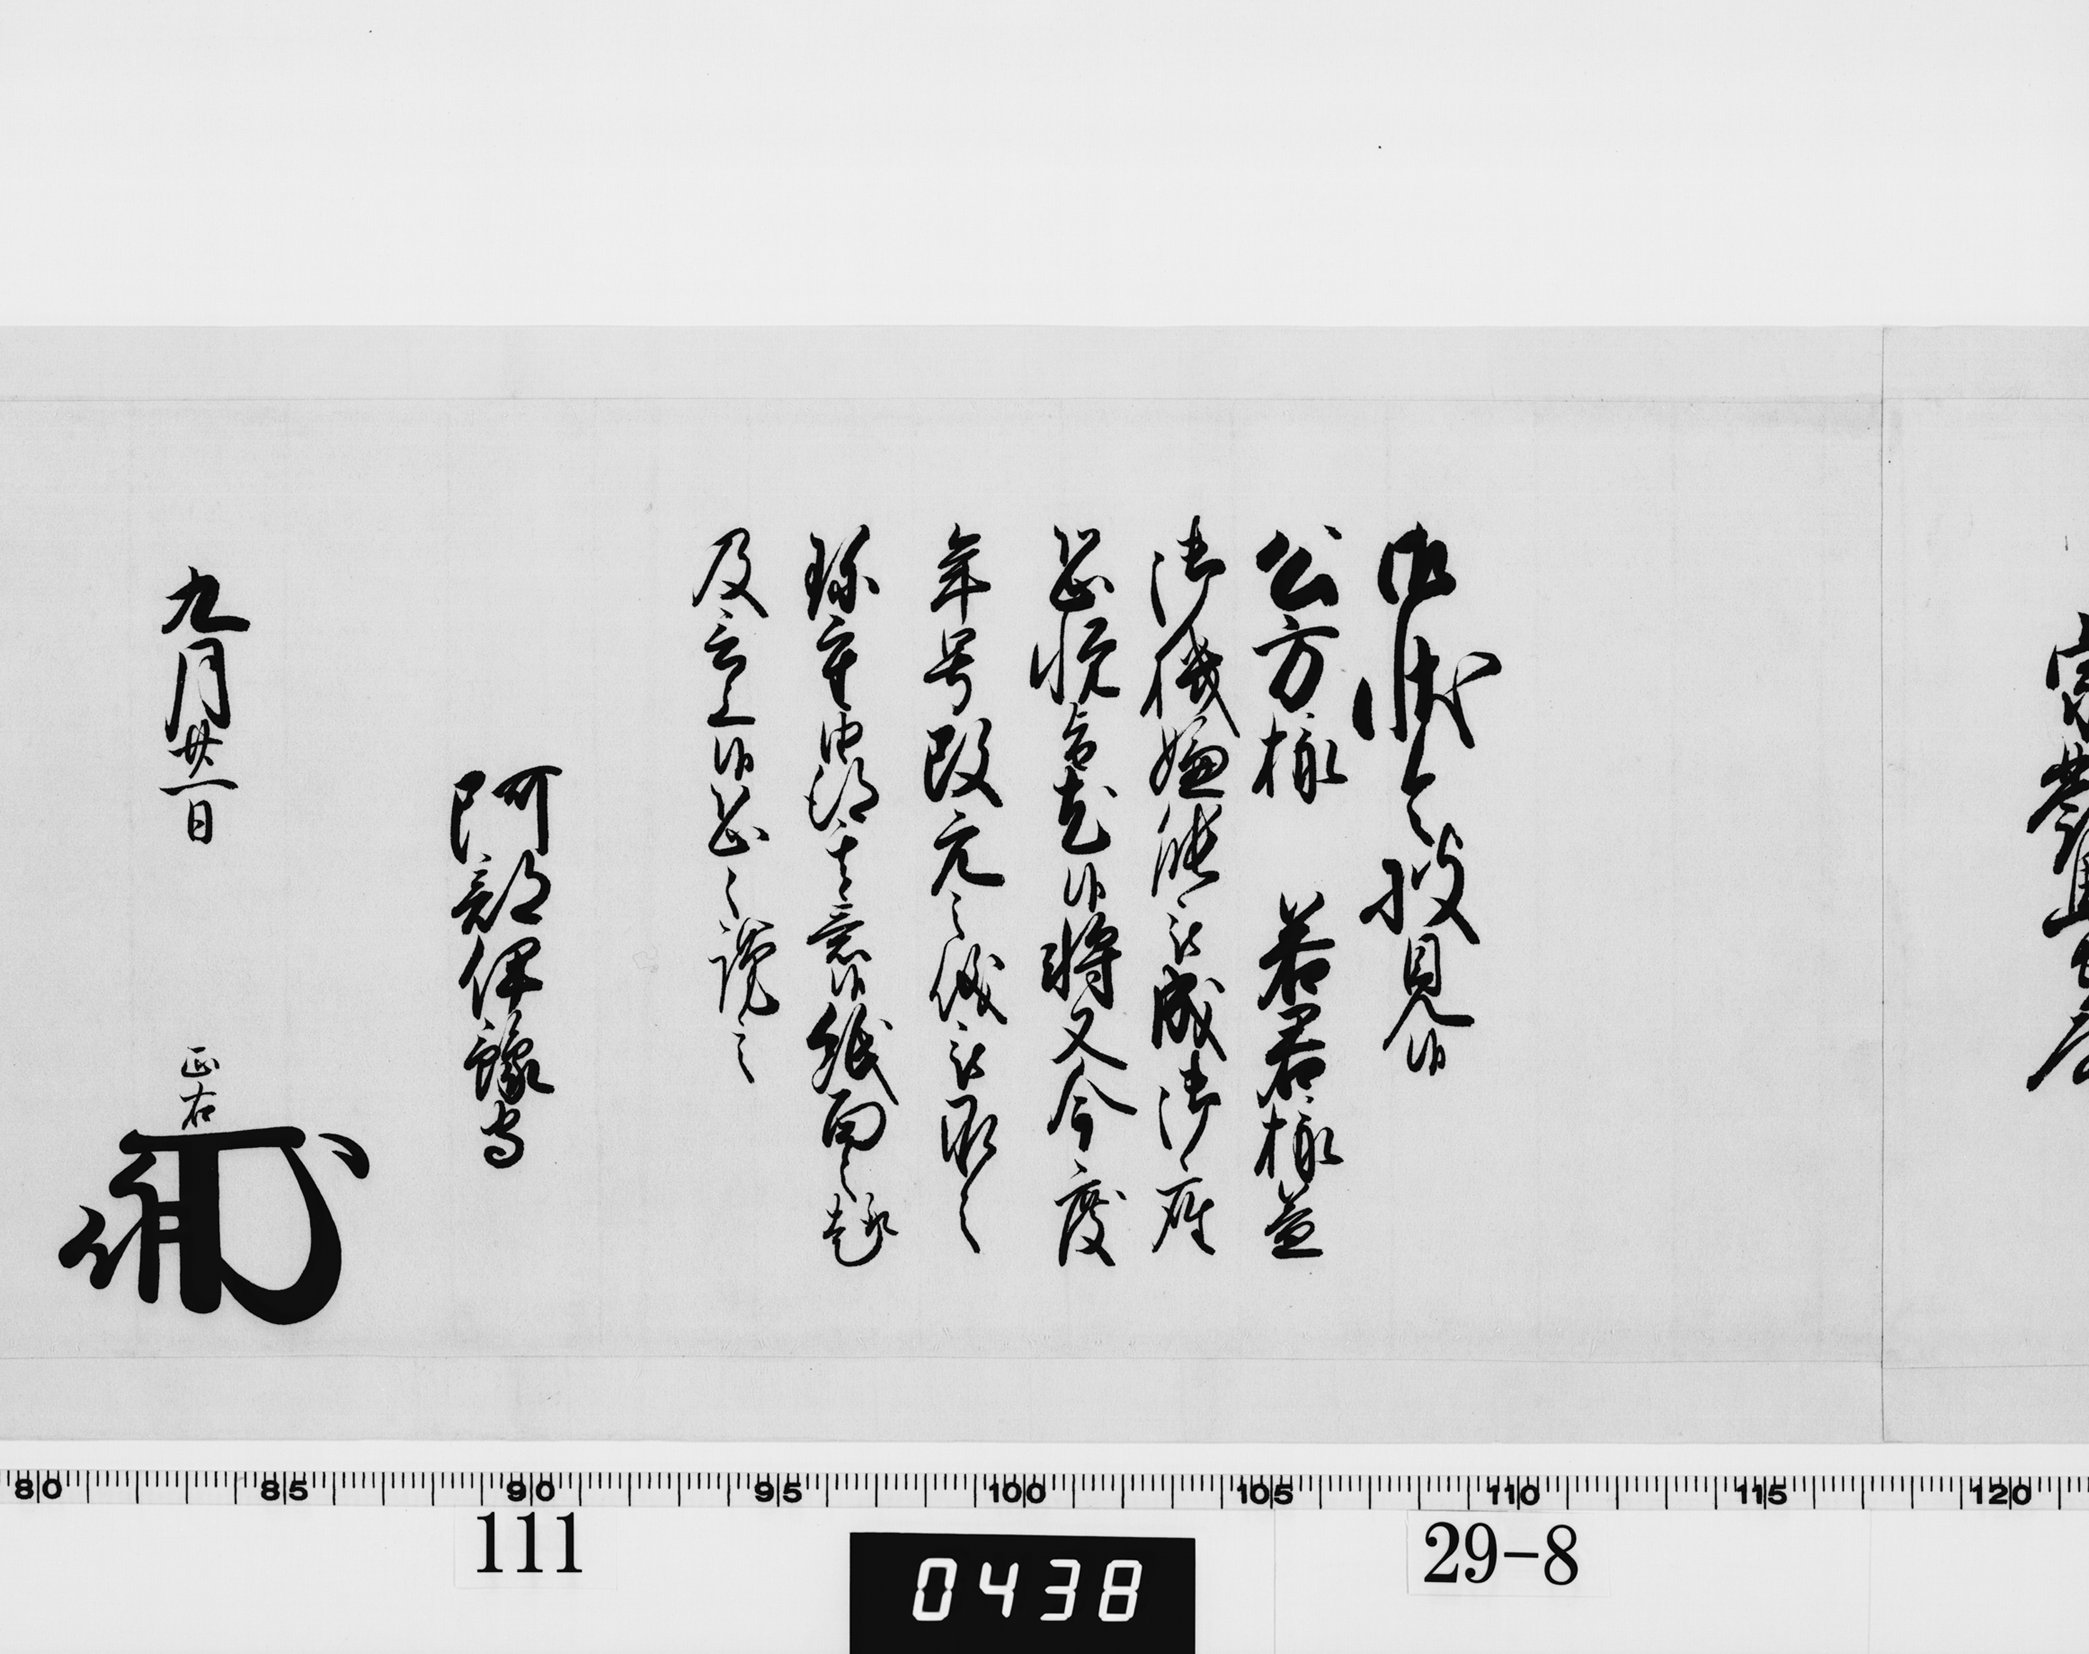 宗對馬守殿
御状令披見候
公方様 若君様益
御機嫌能被成御座
恐悦旨尤候将又今度
年号改元之儀被承之
珎重由得其意候紙面之趣
及言上候恐々謹言
阿部伊豫守
九月廿一日
正右
80 85 90 95 100 105 110 115 120
111
0438
29-8